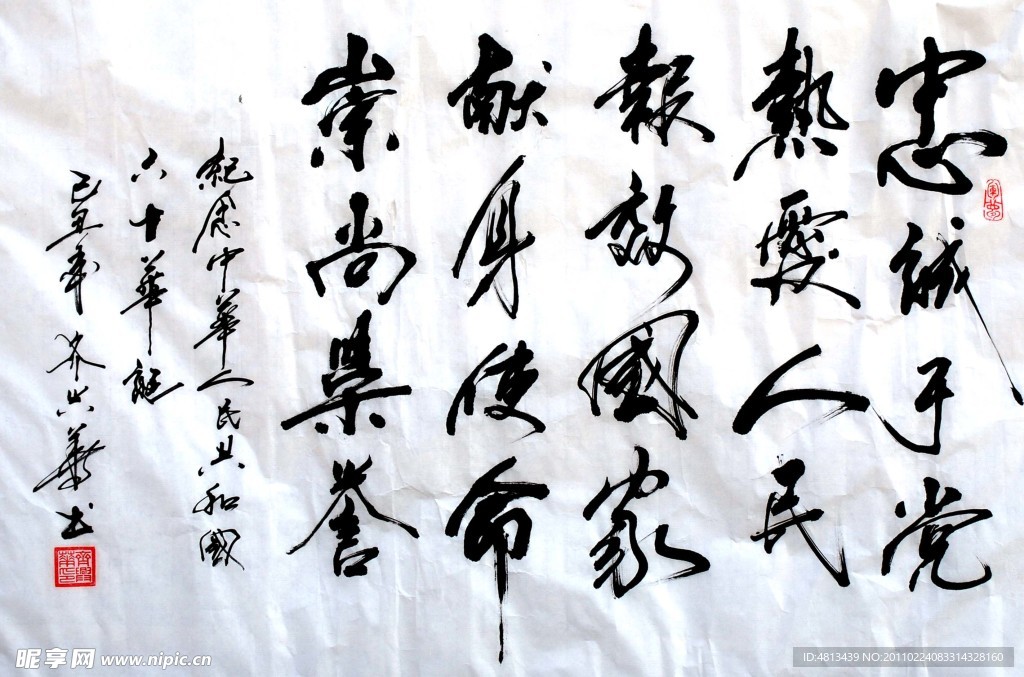 忠誠于党
熱愛人民
報效國家
獻身使命
崇尚榮誉
紀念中華人民共和國
六十華誕
己丑年 齐
華书
昵享网 www.nipic.cn
ID:4813439 NO:20110224083314328160